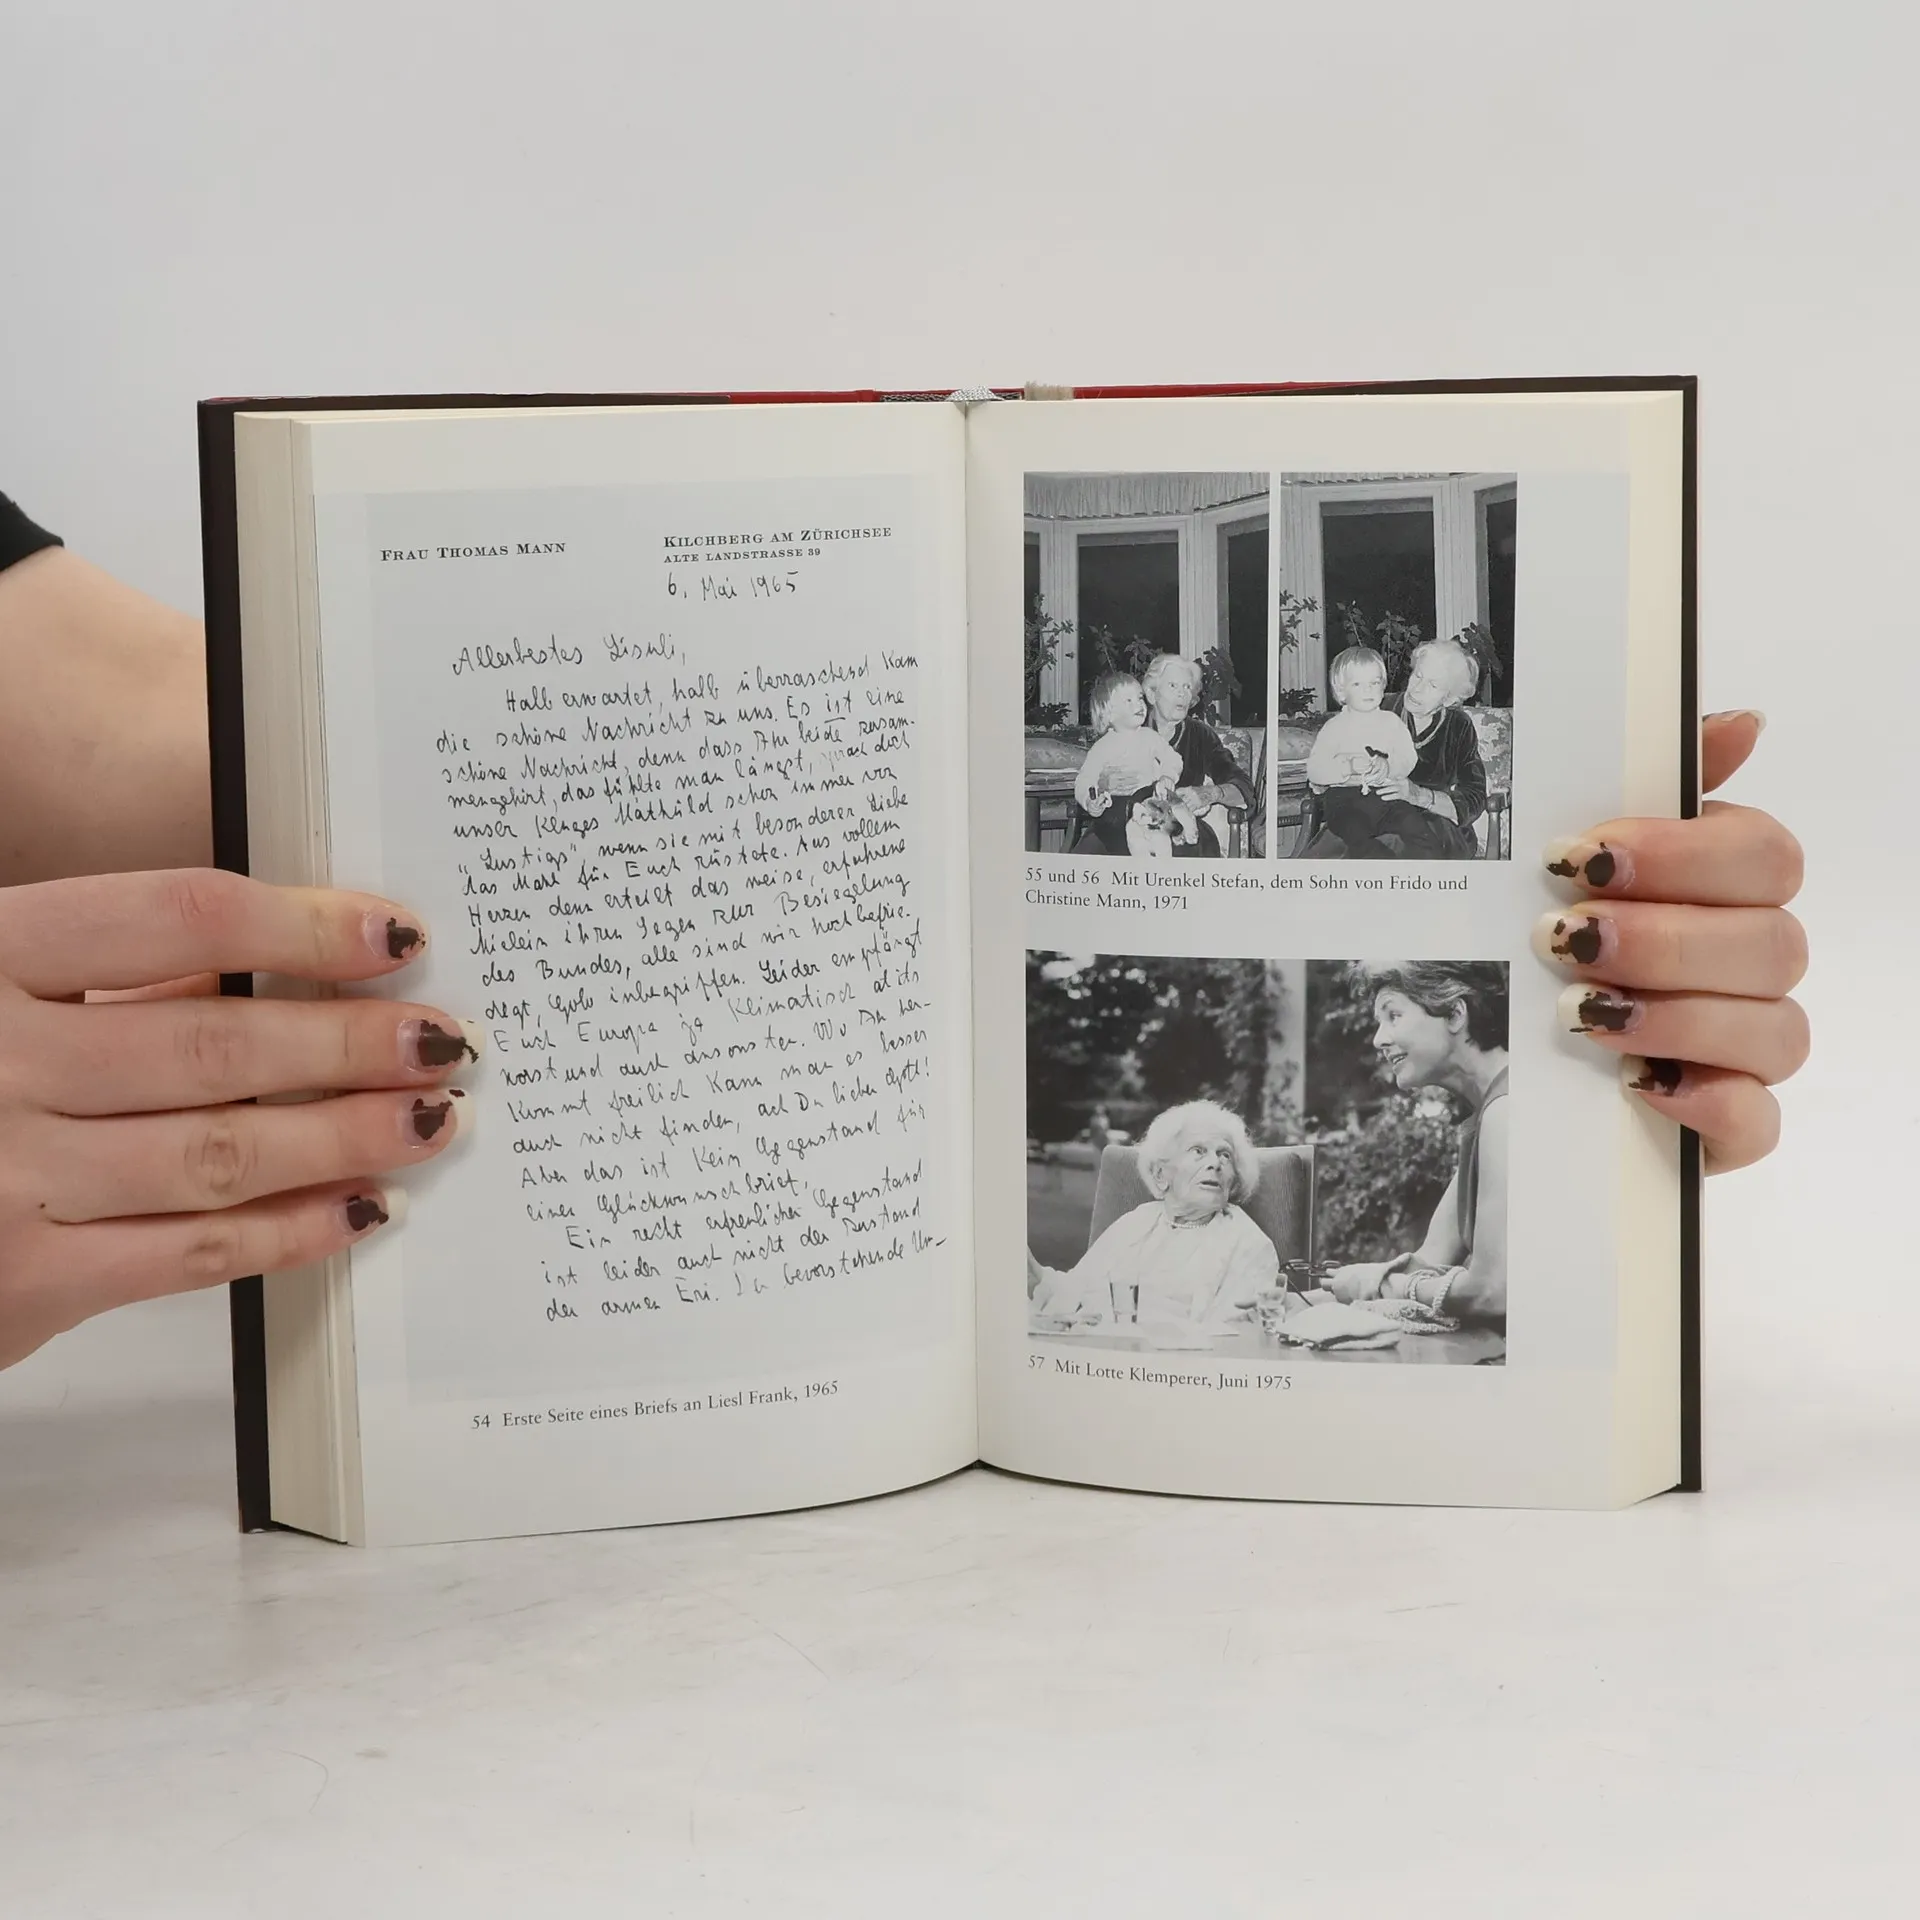 FRAU THOMAS MANN
KILCHBERG AM ZÜRICHSEE
ALTE LANDSTRASSE 39
6. Mai 1965
Allerbestes Lisuli,
Halb erwartet, halb überraschend kam
die schöne Nachricht zu uns. Es ist eine
schöne Nachricht, denn dass Ihr beide zusam-
mengehört, das fühlte man längst, sprach doch
unser kluges Mathüld schon immer von
„Lustigs", wenn sie mit besonderer Liebe
das Mahl für Euch rüstete. Aus vollem
Herzen denn erteilt das weise, erfahrene
Mielein ihren Segen zur Besiegelung
des Bundes, alle sind wir hochbefrie-
digt, Golo inbegriffen. Leider empfängt
Euch Europa ja klimatisch
und auch ansonsten. Wo Ihr her-
kommt freilich kann man es besser
auch nicht finden, ach Du lieber Gott!
Aber das ist kein Gegenstand für
einen Glückwunschbrief.
Ein recht erfreulicher Gegenstand
ist leider auch nicht der Zustand
der armen Eri. bevorstehende
54 Erste Seite eines Briefs an Liesl Frank, 1965
55 und 56 Mit Urenkel Stefan, dem Sohn von Frido und
Christine Mann, 1971
57 Mit Lotte Klemperer, Juni 1975